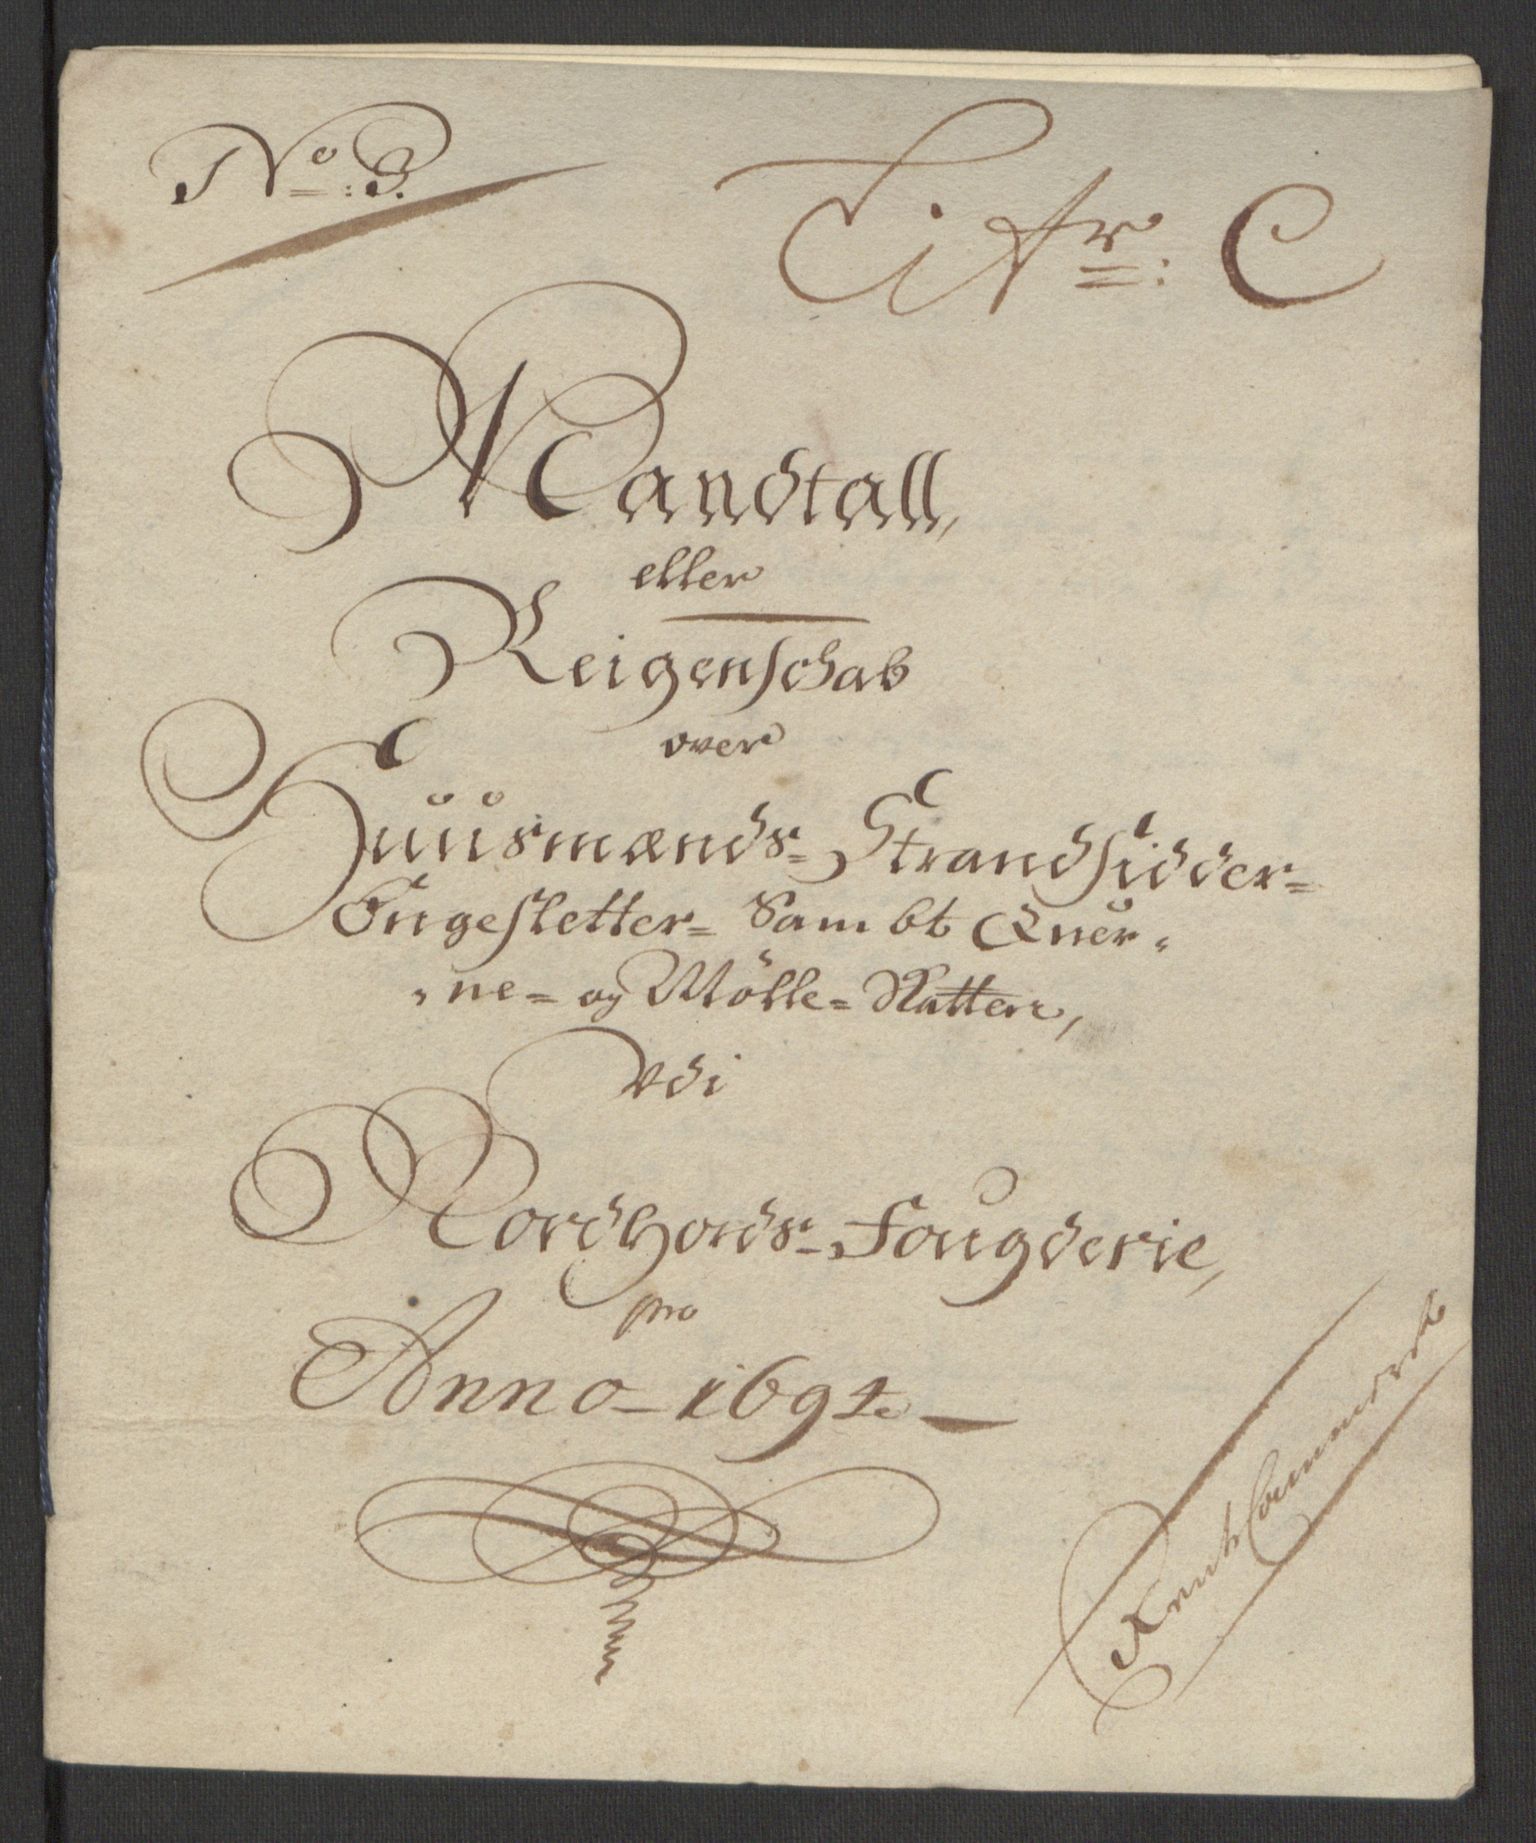 No: 3.
Litr: C
Mandtall,
eller
Reigenschab
over
Huusmænds- Strandsidder-
Engesletter- Sambt Quer-
ne- og Mölle- Skatten,
Udi
Nordhords- Fougderie,
pro
Anno- 1694
Knud